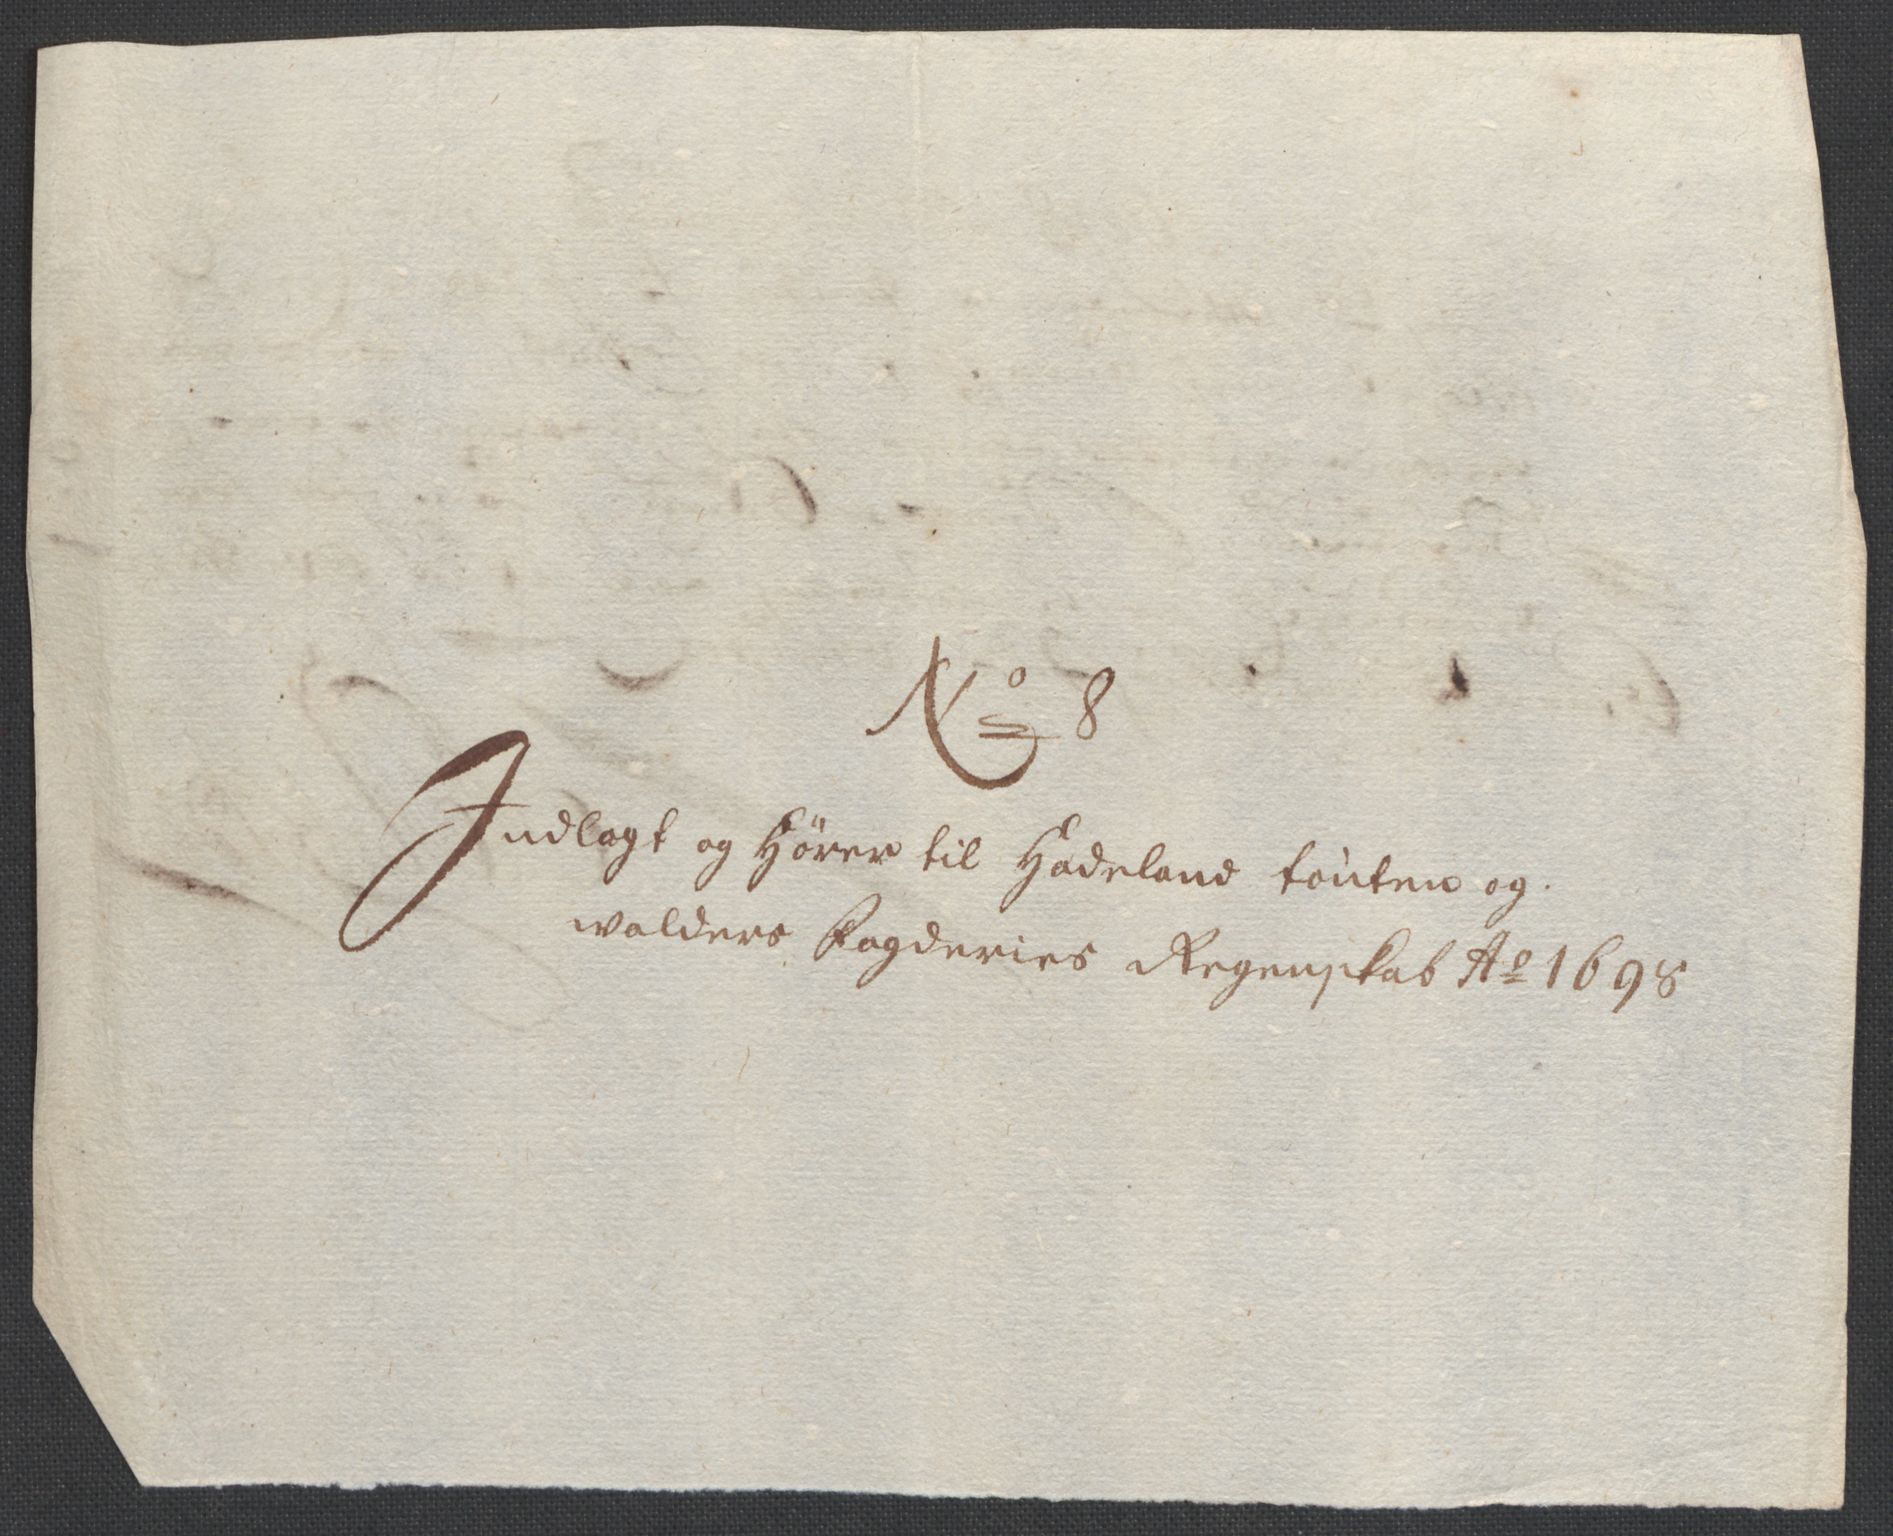 No 8
Indlagt og Hører til Hadeland touten og
walders fogderies Regenskab Ao 1698